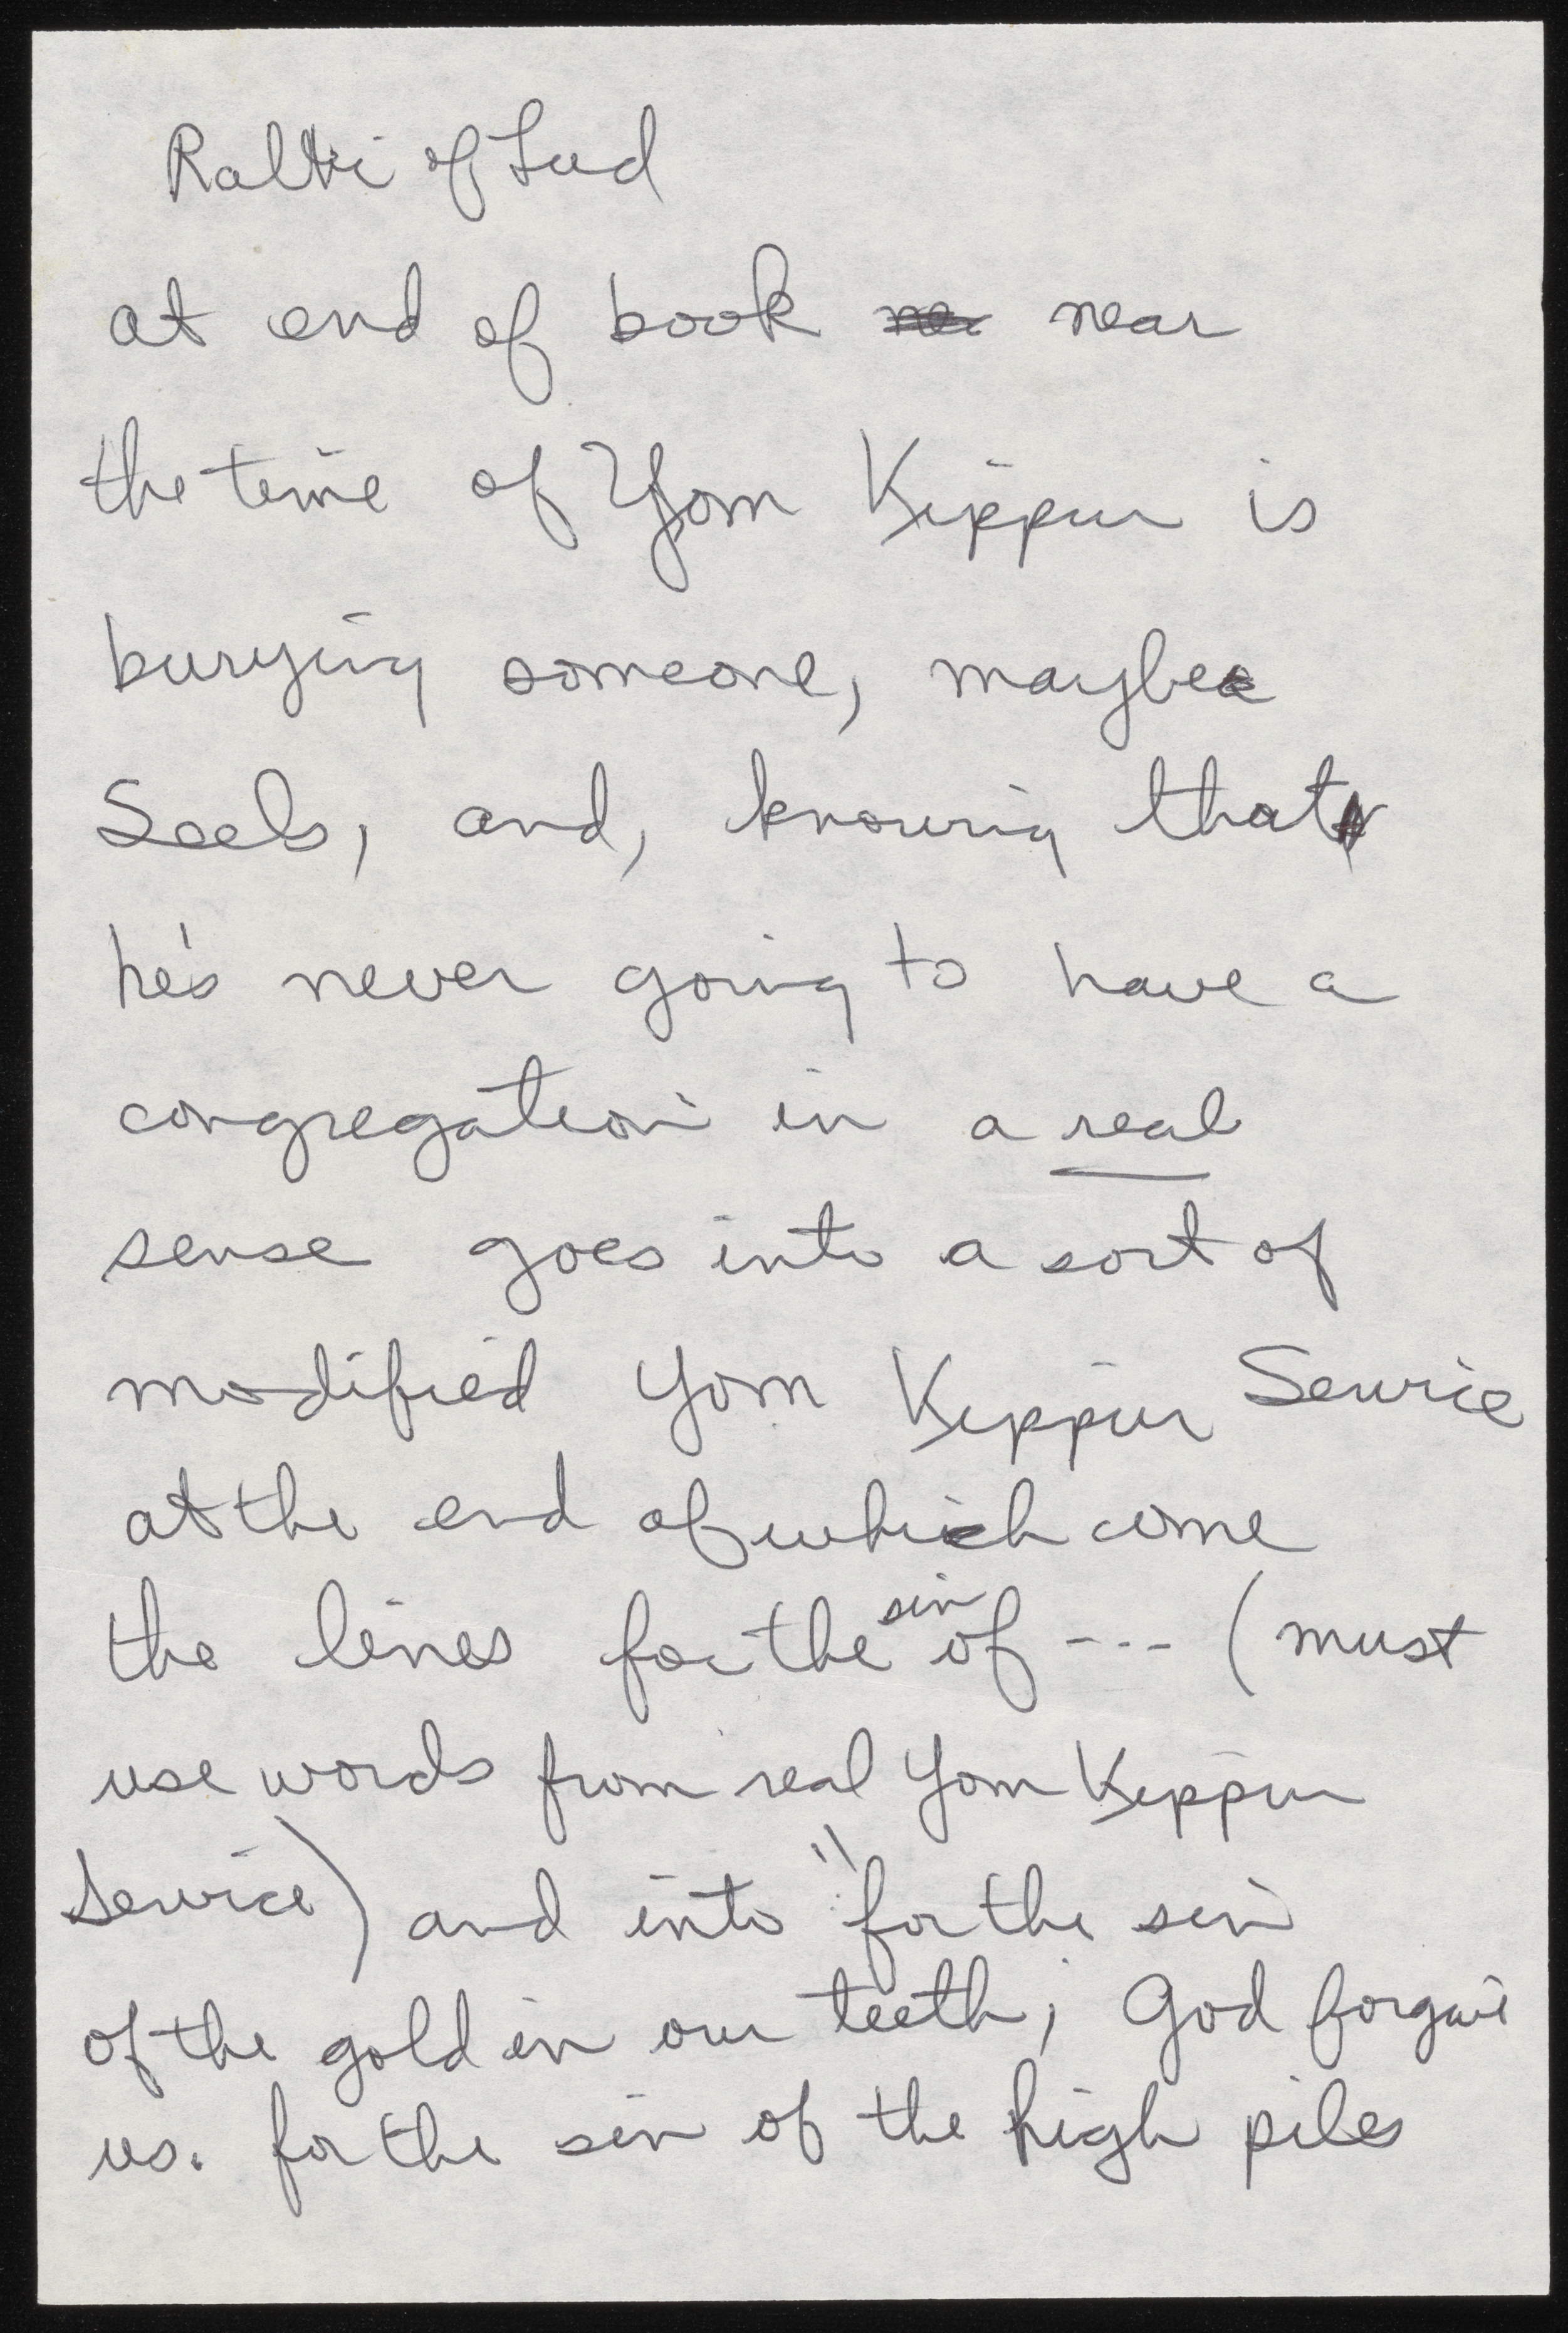 Rabbi of Lud
at end of book near
the time of Yom Kippur is
burying someone, maybe
Seels, and, knowing that
he's never going to have a
congregation in a real
sense goes into a sort of
modified Yom Kippur Service
at the end of which come
the lines for the sin of --- (must
use words from real Yom Kippur
Service) and into "for the sin
of the gold in our teeth, God forgive
us. for the sin of the high piles